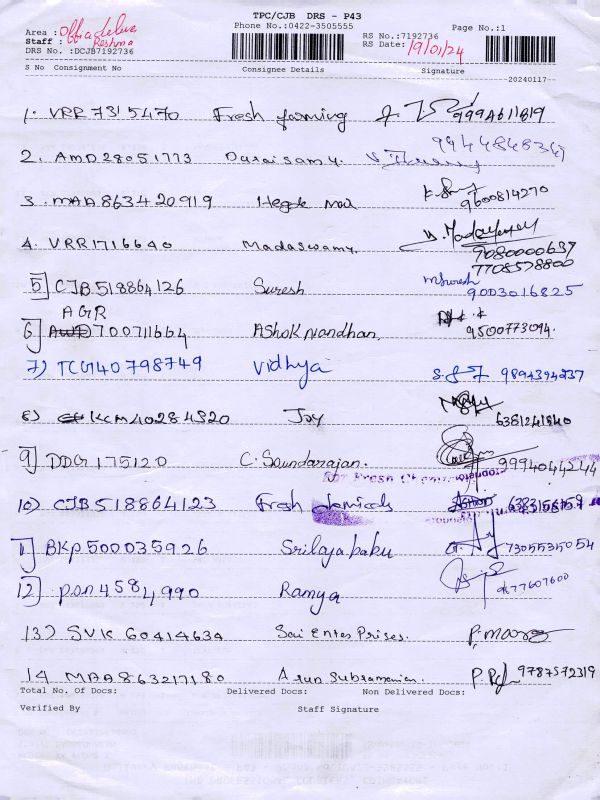 TPC/CJB DRS - P43
Phone No.:0422-3505555
Page No.:1
Area : Office delivery
Staff : Reshma
DRS No. :DCJB7192736
RS No.:7192736
RS Date: 19/01/24
S No Consignment No Consignee Details Signature
20240117--
1. VRR 7315470 Fresh farming 9994611819
2. AMD28051773 Duraisamy. 9944848347
3. MAA863420919 Hegde 9600814270
4. VRR1716640 Madaswamy. 7080000637
7708578800
5 CJB518864126 Suresh 9003016825
AGR
6 700711664 Ashok Nandhan. 9500773094.
7) TCG140798749 Vidhya 9894394237
8) KCM40284520 Joy 6381241840
9 DDG175120 C. Soundarajan. 9994044244
10) CJB518864123 Fresh
11 BKP500035926 Srilajababu 7305535054
12 4584990 Ramya 9677607600
13) SVK60414634 Sai Enter Prises.
14. MAA863217180 Arun Subramanian. 9787572319
Total No. Of Docs: Delivered Docs: Non Delivered Docs:
Verified By Staff Signature